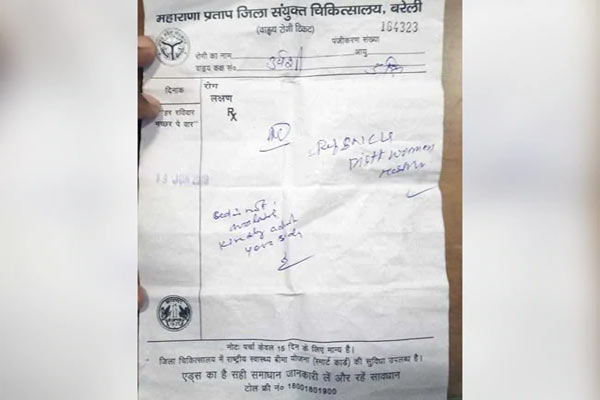 महाराणा प्रताप जिला संयुक्त चिकित्सालय, बरेली
(वाह्य रोगी टिकट)
164323
पंजीकरण संख्या
रोगी का नाम
आयु
वाह्य कक्ष सं०
दिनांक
रोग
लक्षण
Rx
"हर रविवार
मच्छर पे वार"
Ref SNCU
Distt women
13 JUN
Bed is not
available
kindly admit
your side
नोट: पर्चा केवल 15 दिन के लिए मान्य है।
जिला चिकित्सालय में राष्ट्रीय स्वास्थ्य बीमा योजना (स्मार्ट कार्ड) की सुविधा उपलब्ध है।
एड्स का है सही समाधान जानकारी लें और रहें सावधान
टोल फ्री नं० 18001801900